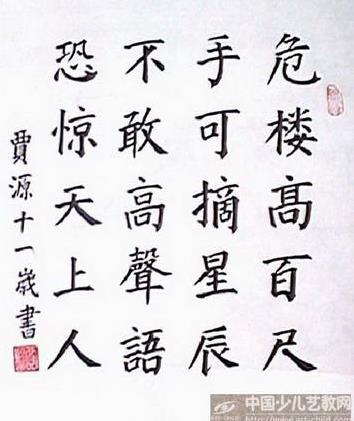 危楼髙百尺
手可摘星辰
不敢高聲語
恐惊天上人
賈源十一歲書
中国少儿艺教网
www.art-child.com